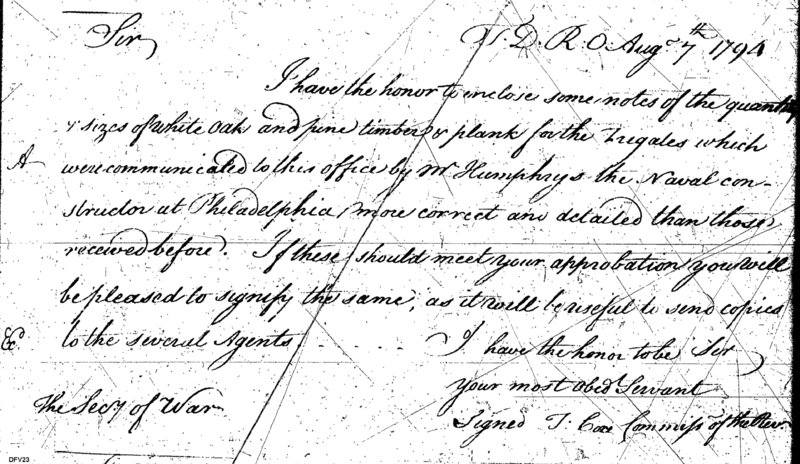 Sir, T. D. R. O Augt 7th 1794
I have the honor to enclose some notes of the quantity
& sizes of white Oak and pine timber & plank for the Frigates which
A were communicated to this office by Mr Humphrys the Naval con-
structor at Philadelphia, more correct and detailed than those
received before. If these should meet your approbation you will
be pleased to signify the same, as it will be useful to send copies
to the several Agents. . . . . .
I have the honor to be Sir
your most Obedt Servant
The Secy of War
Signed T. Coxe Commiss of the Rev.
DFV23